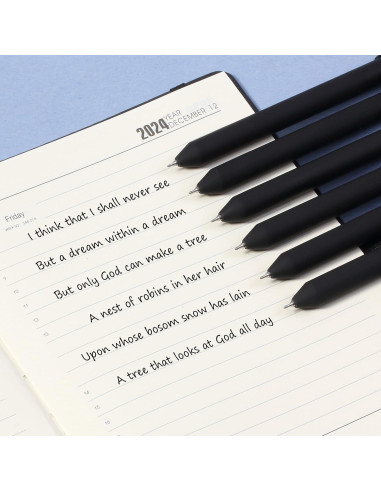 2024 YEAR
DECEMBER 12
Friday
I think that I shall never see
But a dream within a dream
But only God can make a tree
A nest of robins in her hair
Upon whose bosom snow has lain
A tree that looks at God all day